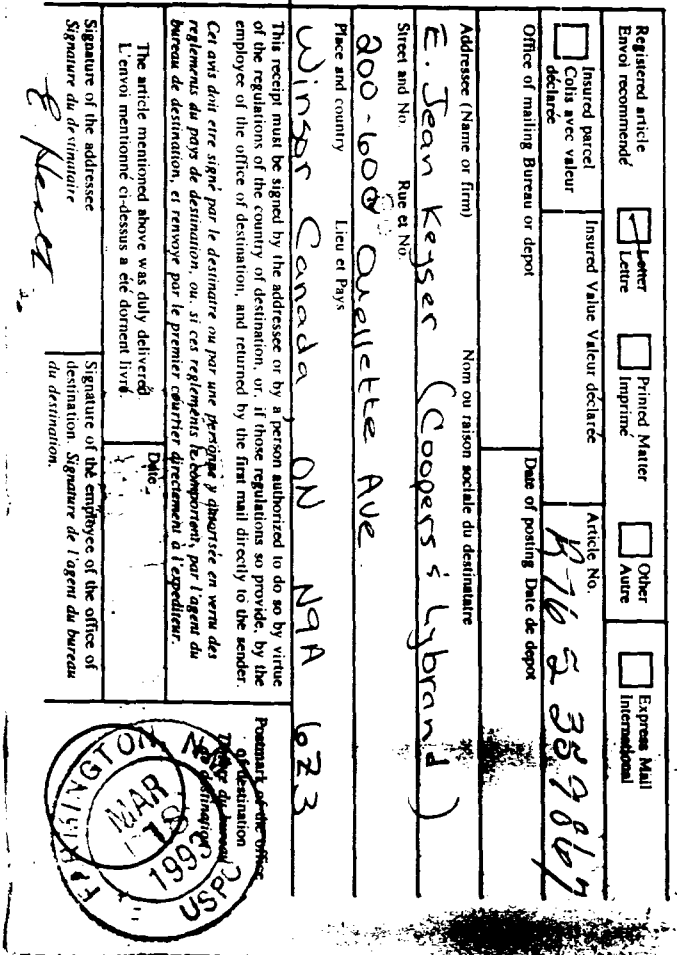 Registered article
Envoi recommendé
Letter
Lettre
Printed Matter
Imprimé
Other
Autre
Express Mail
International
Insured parcel
Colis avec valeur
déclarée
Insured Value Valeur déclarée
Article No.
Office of mailing Bureau or depot
Date of posting Date de depot
Addressee (Name or firm)
Nom ou raison sociale du destinataire
E. Jean Keyser (Coopers & Lybrand)
Street and No. Rue et No.
200-600 Ouellette Ave
Place and country Lieu et Pays
Winsor Canada, ON N9A 6Z3
This receipt must be signed by the addressee or by a person authorized to do so by virtue
of the regulations of the country of destination, or, if those regulations so provide, by the
employee of the office of destination, and returned by the first mail directly to the sender.
Cet avis doit etre signé par le destinatre ou par une personne y autorisée en vertu des
reglements du pays de destination, ou, si ces reglements le comportent, par l'agent du
bureau de destination, et renvoye par le premier courtier directement à l'expediteur.
Postmark of the office
of destination
The article mentioned above was duly delivered
L'envoi mentionné ci-dessus a été dornent livré.
Date
Signature of the addressee
Signature du destinataire
Signature of the employee of the office of
destination. Signature de l'agent du bureau
du destination.
MAR
1993
USPO